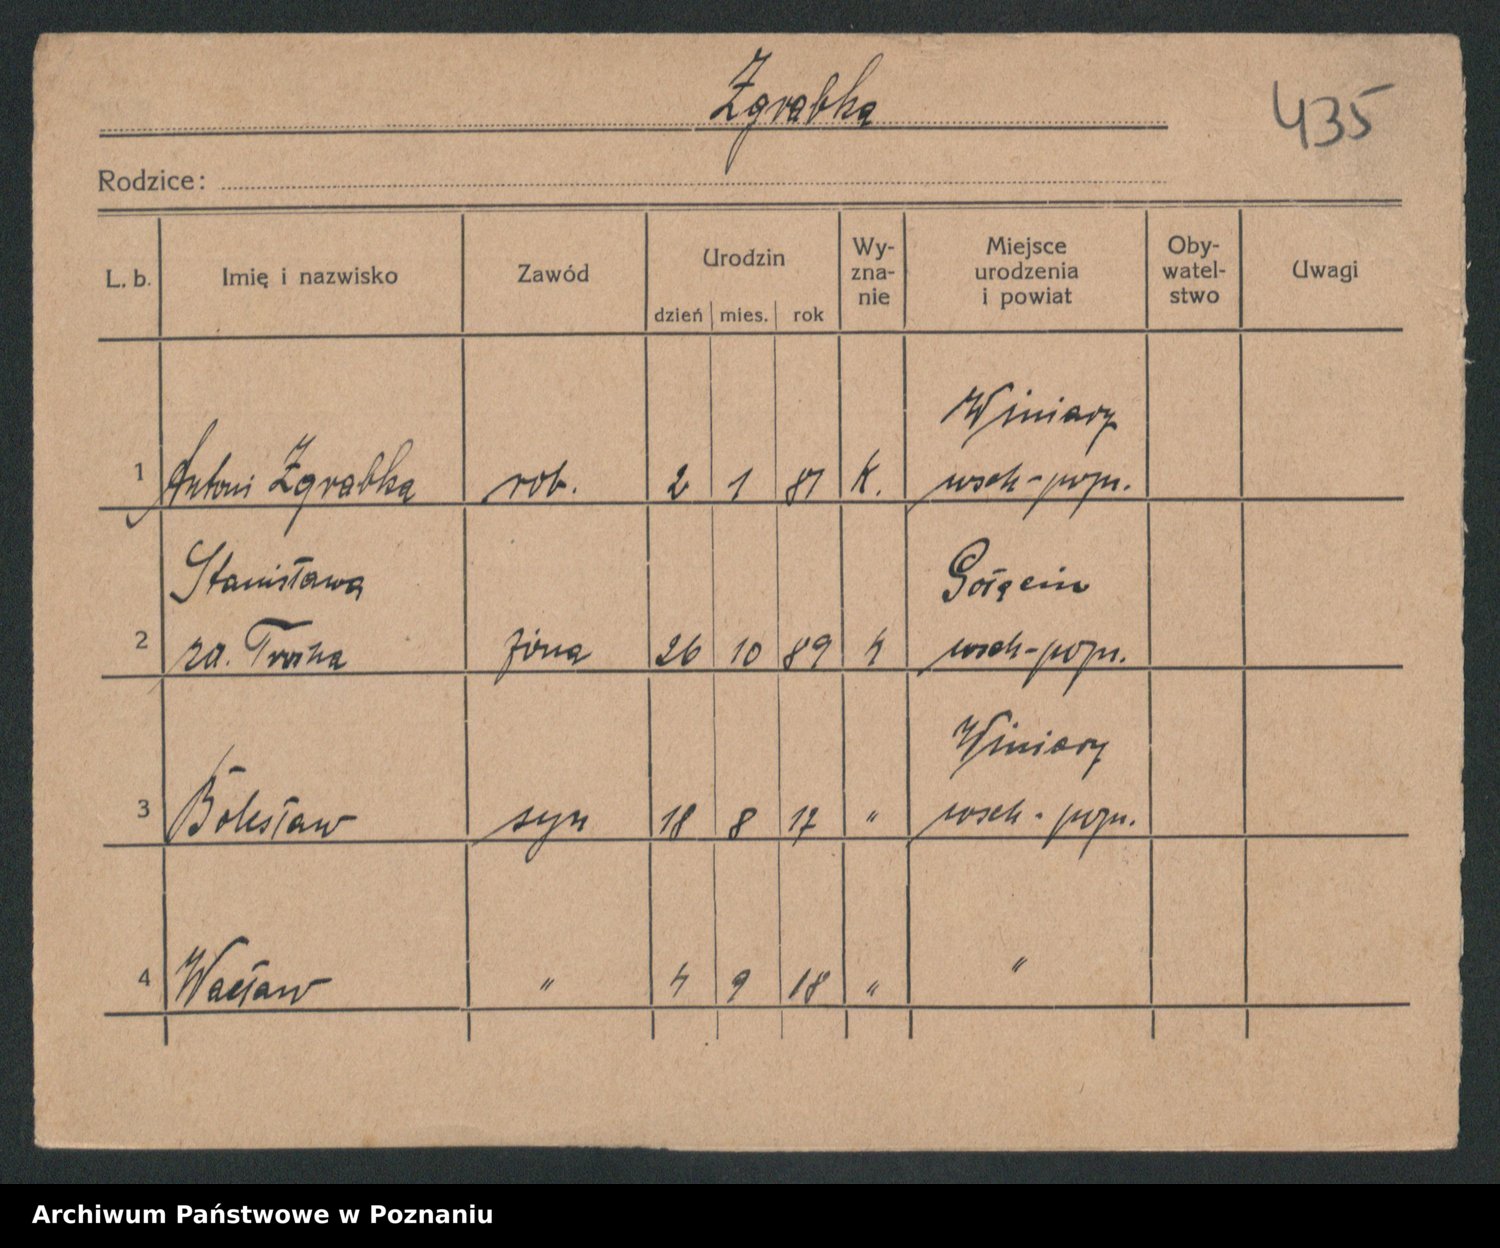 Zgrabka
435
Rodzice:
L. b. Imię i nazwisko Zawód Urodzin dzień mies. rok Wy-zna-nie Miejsce urodzenia i powiat Oby-watel-stwo Uwagi
Winiary
1 Antoni Zgrabka rob. 2 1 87 k. wsch-pozn.
Stanisława Gołęcin
2 za. Troska żona 26 10 89 k wsch-pozn.
Winiary
3 Bolesław syn 18 8 17 " wsch-pozn.
4 Wacław " 4 9 18 " "
Archiwum Państwowe w Poznaniu